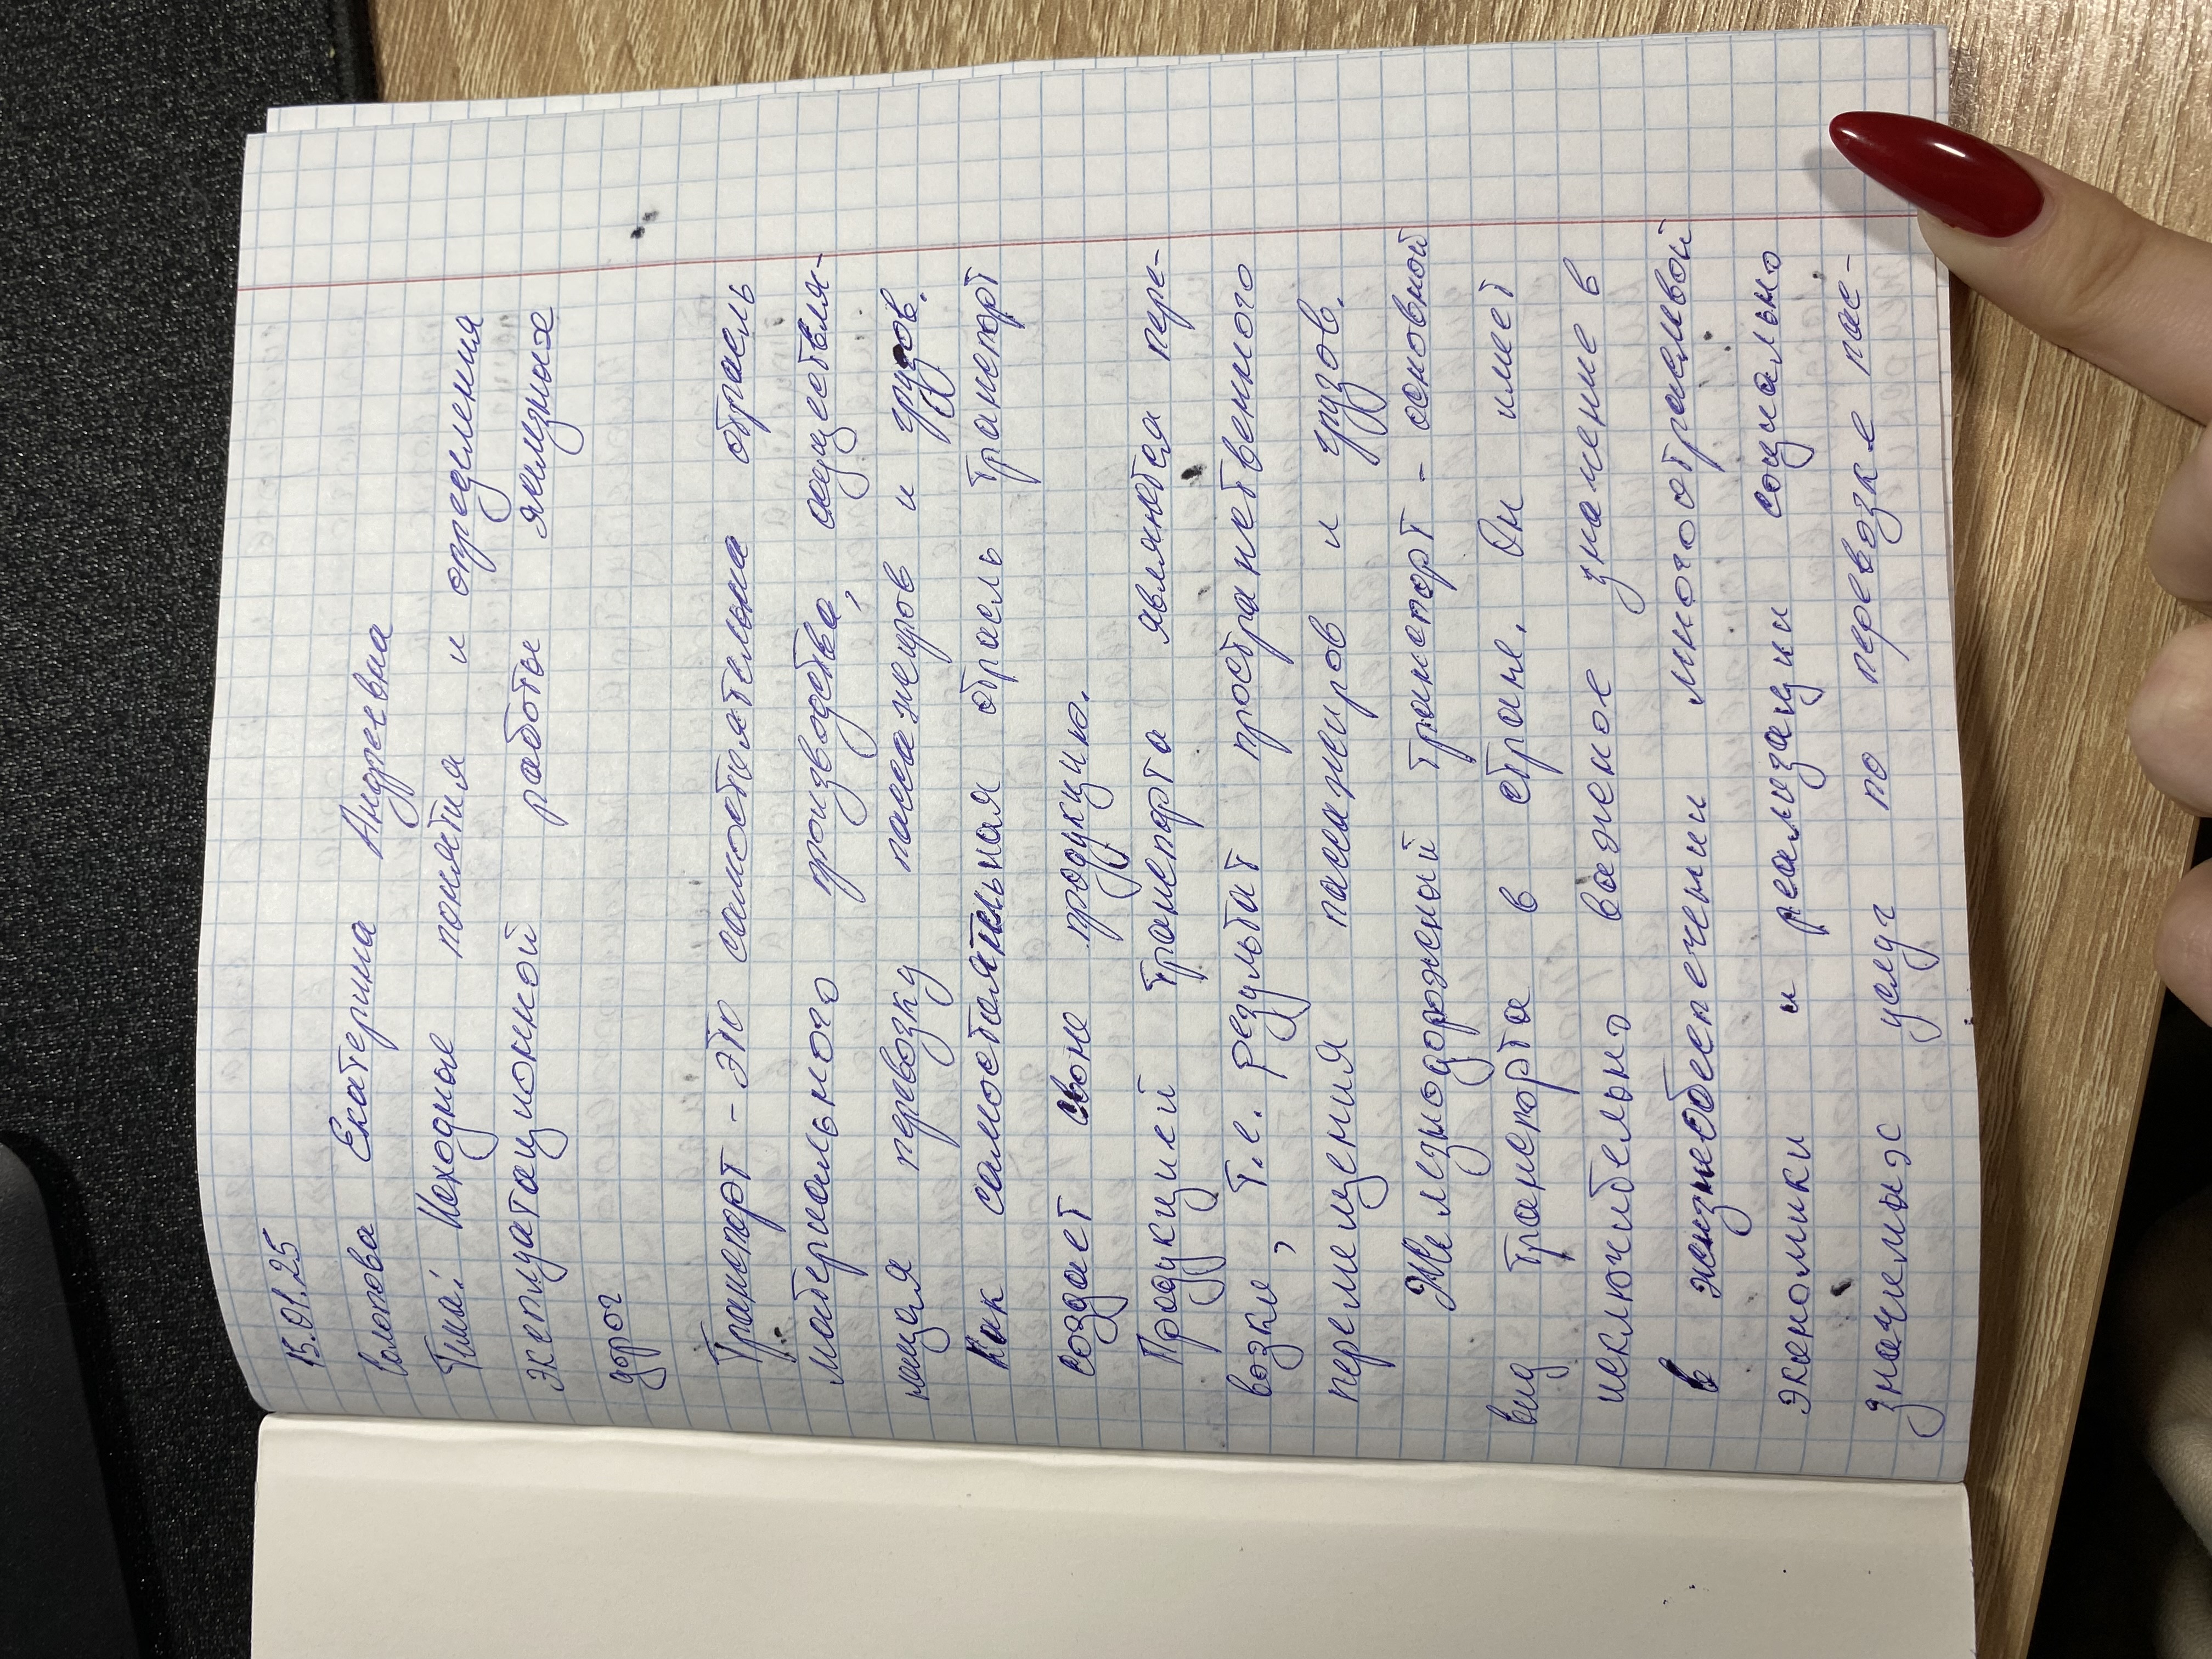 15.01.25
Екатерина Андреевна
Тема: Исходные понятия и определения
эксплуатационной работы железных
дорог
Транспорт - это самостоятельна отрасль
материального производства, осуществля-
ющая перевозку пассажиров и грузов.
Как самостоятельная отрасль транспорт
создает свою продукцию.
Продукцией транспорта являются пере-
возки, т.е. результат пространственного
перемещения пассажиров и грузов.
Железнодорожный транспорт - основной
вид транспорта в стране. Он имеет
исключительно важное значение в
в жизнеобеспечении многоотраслевой
экономики и реализации социально
значемыэс услуг по перевозке пас-